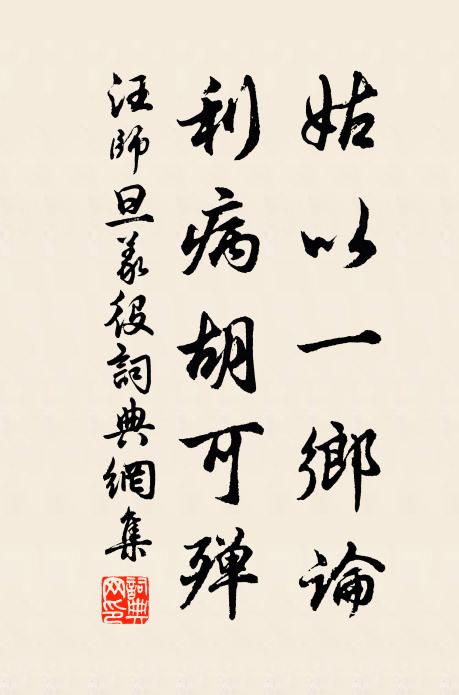 姑以一鄉論
利病胡可殫
汪師旦義役詞典網集
詞典網印